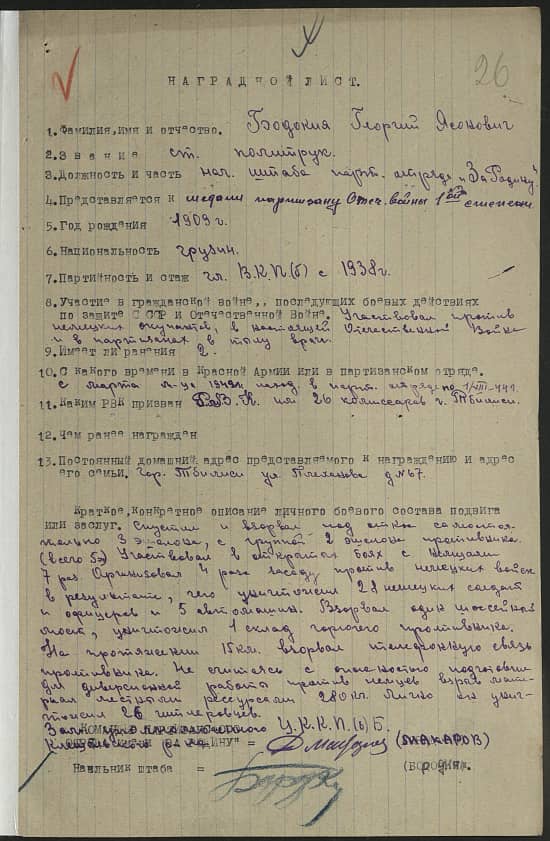 26
НАГРАДНОЙ ЛИСТ.
1. Фамилия, имя и отчество. Бодокия Георгий Ясонович
2. Звание ст. политрук.
3. Должность и часть нач. штаба парт. отряда „За Родину"
4. Представляется к медали партизану Отеч. войны 1ой степени
5. Год рождения 1909 г.
6. Национальность грузин.
7. Партийность и стаж чл. В.К.П(б) с 1938 г.
8. Участие в гражданской войне,, последующих боевых действиях
по защите СССР и Отечественной Войне. Участвовал против
немецких окупантов, в настоящей Отечественной Войне
и в партизанах в тылу врага.
9. Имеет ли ранения 2.
10. С какого времени в Красной Армии или в партизанском отряде.
с марта м-ца наход. в парт. отряде по
11. Каким РВК призван им 26 комиссаров г. Тбилиси.
12. Чем ранее награжден
13. Постоянный домашний адрес представляемого к награждению и адрес
его семьи. Гор. Тбилиси ул. Плеханова д № 67.
Краткое, конкретное описание личного боевого состава подвига
или заслуг. Спустил и взорвал под откос самостоя-
тельно 3 эшалона, с группой 2 эшелона противника.
(всего 5э) Участвовал в открытых боях с немцами
7 раз. Организовал 4 раза засаду против немецких войск
в результате, чего уничтожил 28 немецких солдат
и офицеров и 5 автомашин. Взорвал один шоссейный
мост, уничтожил 1 склад горючего противника.
На протяжении 15 кл. взорвал телефонную связь
противника. Не считаясь с опасностью подготовил
для диверсионной работы против немцев взрыв мате-
риал местными ресурсами 280 кл. Лично он унич-
тожил 26 гитлеровцев.
Ц.К.К.П.(б)Б.
РОДИНУ" = (МАКАРОВ)
Начльник штаба =